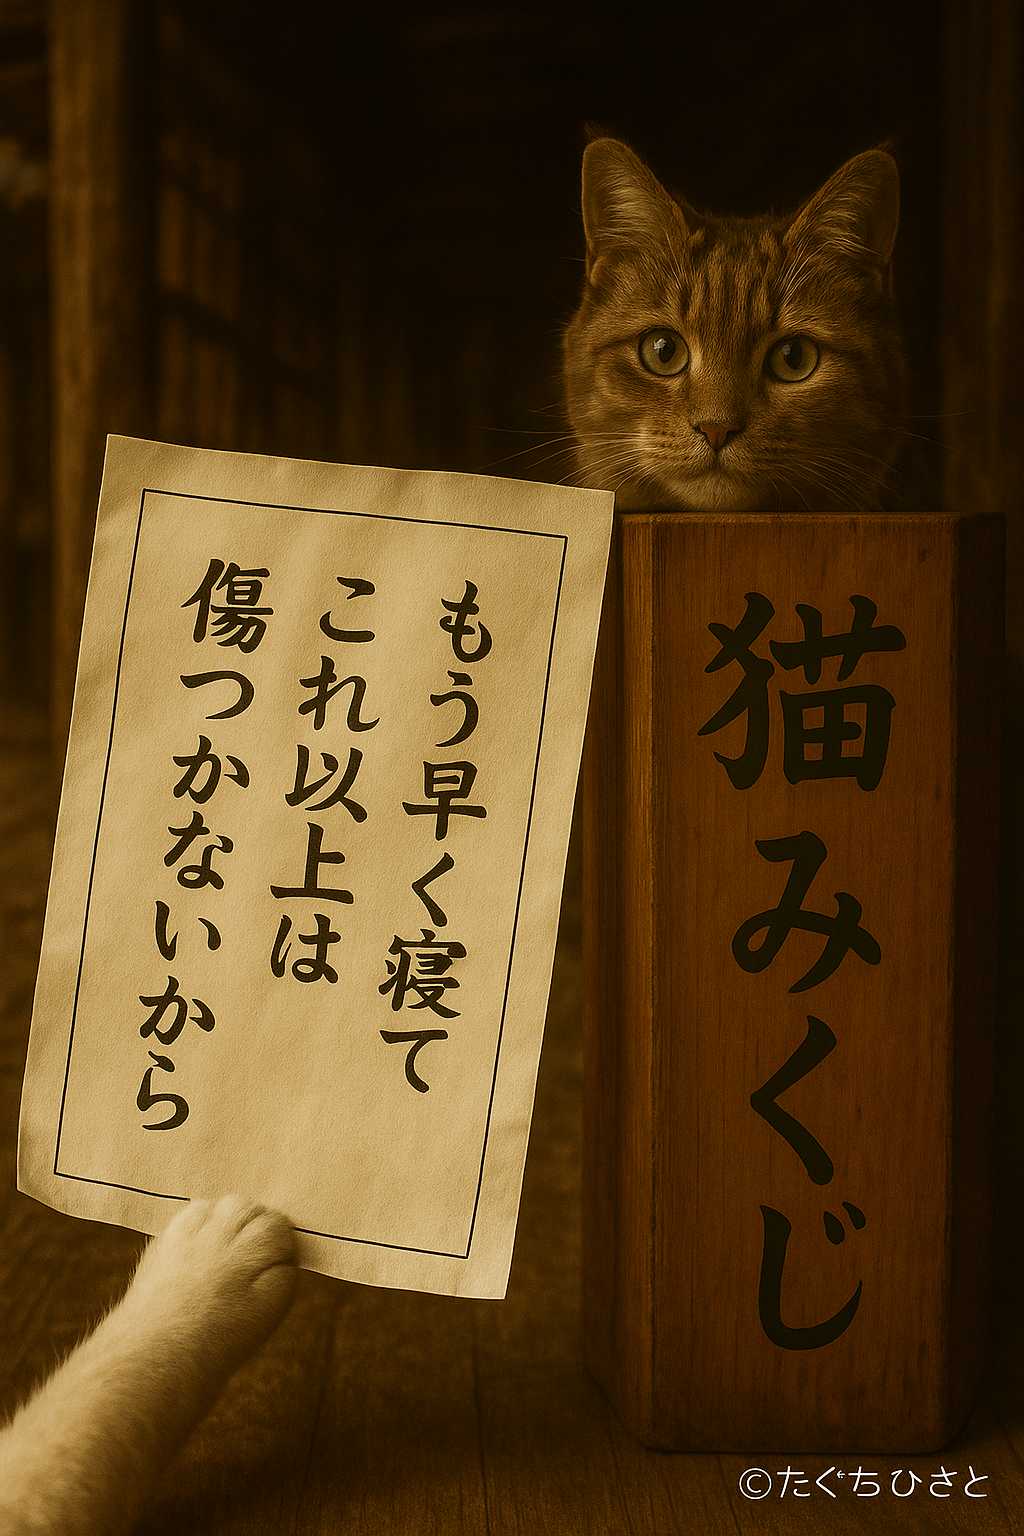 もう早く寝て
これ以上は
傷つかないから
猫みくじ
©たぐちひさと